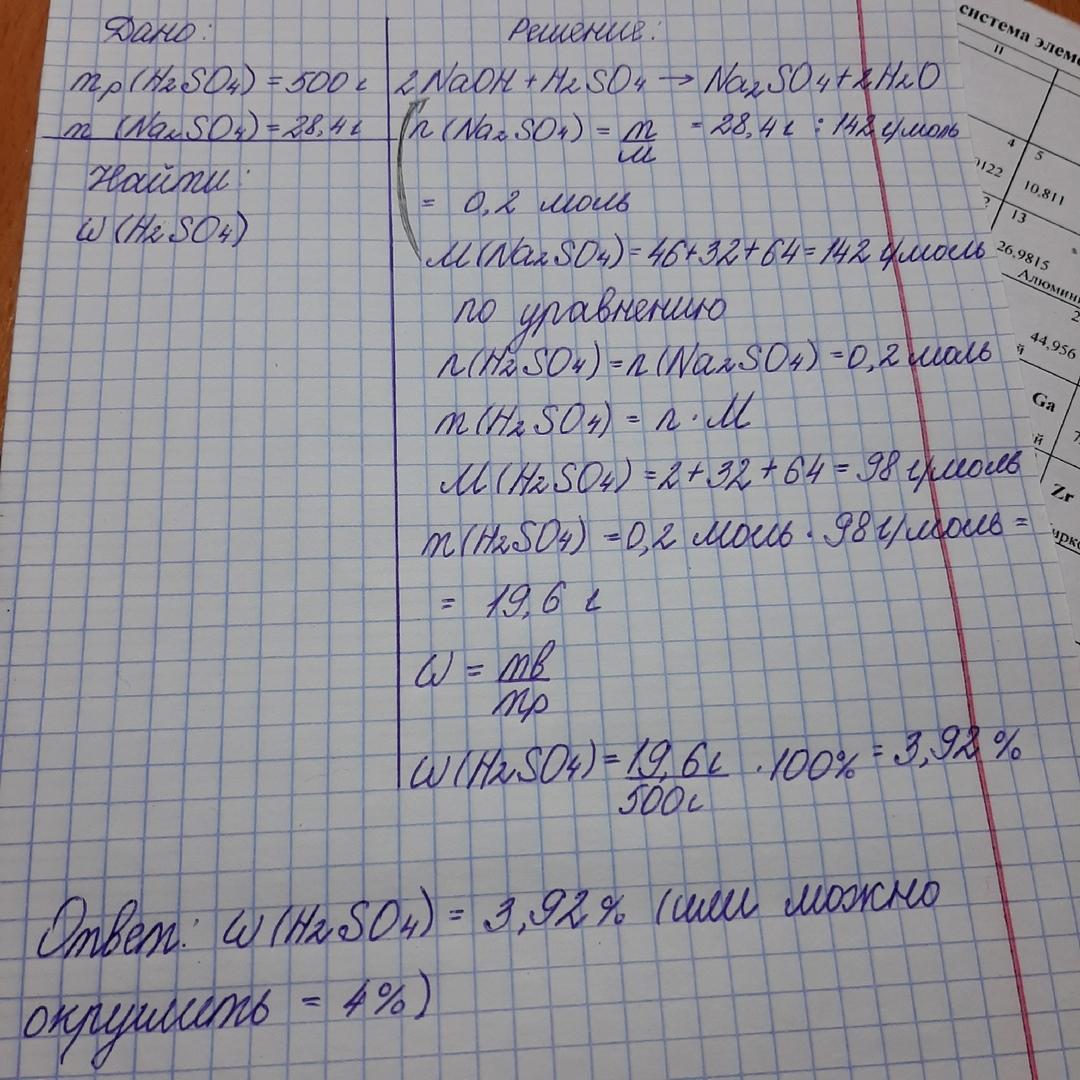 Дано:
mр(H₂SO₄) = 500 г
m (Na₂SO₄) = 28,4 г
Найти:
ω(H₂SO₄)
Решение:
2NaOH + H₂SO₄ → Na₂SO₄ + 2H₂O
n(Na₂SO₄) = m/M = 28,4 г : 142 г/моль
= 0,2 моль
M(Na₂SO₄) = 46+32+64 = 142 г/моль
по уравнению
n(H₂SO₄) = n(Na₂SO₄) = 0,2 моль
m(H₂SO₄) = n · M
M(H₂SO₄) = 2 + 32 + 64 = 98 г/моль
m(H₂SO₄) = 0,2 моль · 98 г/моль =
= 19,6 г
ω = mв/mр
ω(H₂SO₄) = 19,6г/500г · 100% = 3,92 %
Ответ: ω(H₂SO₄) = 3,92% (или можно
округлить = 4%)
система элеме
II
4 5
0122 10,811
13
26,9815
Алюмини
2
44,956
й
Ga
й 7
Zr
ирко